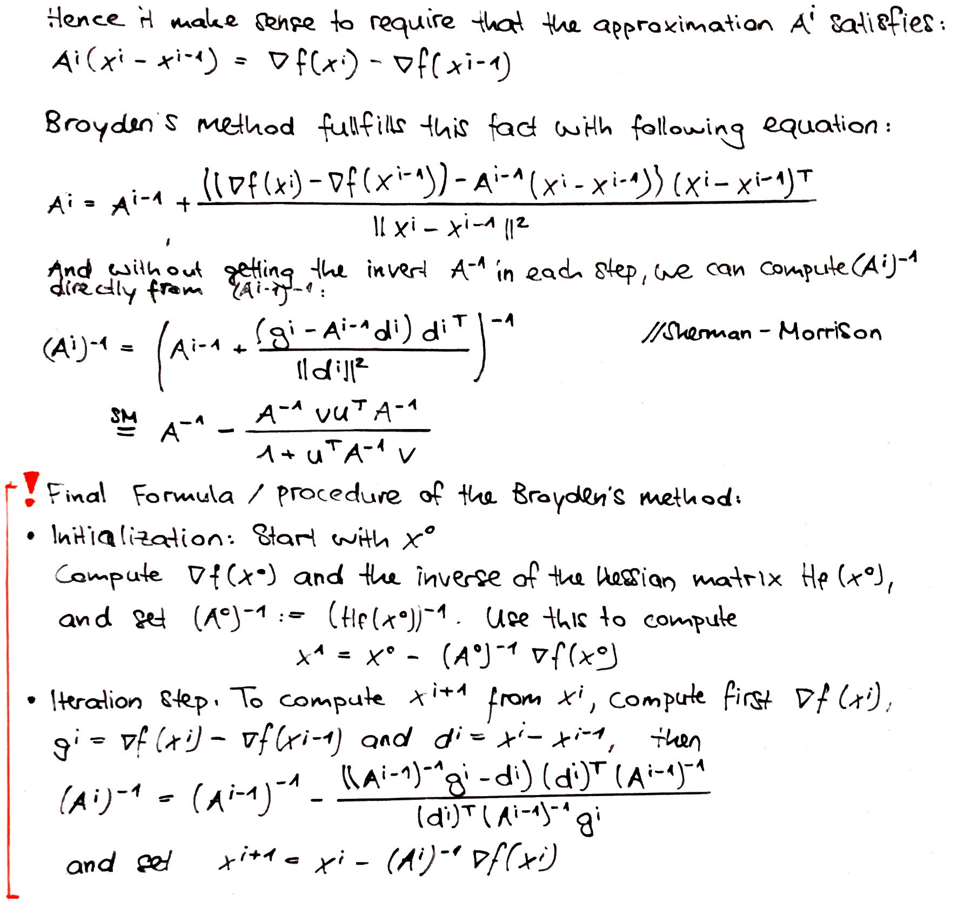 Hence it make sense to require that the approximation Aⁱ satisfies:
Aⁱ(xⁱ - xⁱ⁻¹) = ∇f(xⁱ) - ∇f(xⁱ⁻¹)
Broyden's method fullfills this fact with following equation:
Aⁱ = Aⁱ⁻¹ + ((∇f(xⁱ) - ∇f(xⁱ⁻¹)) - Aⁱ⁻¹(xⁱ - xⁱ⁻¹)) (xⁱ - xⁱ⁻¹)ᵀ / ||xⁱ - xⁱ⁻¹||²
And without getting the invert A⁻¹ in each step, we can compute (Aⁱ)⁻¹
directly from (Aⁱ⁻¹)⁻¹:
(Aⁱ)⁻¹ = (Aⁱ⁻¹ + (gⁱ - Aⁱ⁻¹dⁱ) dⁱᵀ / ||dⁱ||²)⁻¹ //Sherman - Morrison
SM = A⁻¹ - A⁻¹ vuᵀ A⁻¹ / 1 + uᵀA⁻¹ v
! Final Formula / procedure of the Broyden's method:
• Initialization: Start with x⁰
Compute ∇f(x⁰) and the inverse of the Hessian matrix Hf(x⁰),
and set (A⁰)⁻¹ := (Hf(x⁰))⁻¹. Use this to compute
x¹ = x⁰ - (A⁰)⁻¹ ∇f(x⁰)
• Iteration step. To compute xⁱ⁺¹ from xⁱ, compute first ∇f(xⁱ),
gⁱ = ∇f(xⁱ) - ∇f(xⁱ⁻¹) and dⁱ = xⁱ - xⁱ⁻¹, then
(Aⁱ)⁻¹ = (Aⁱ⁻¹)⁻¹ - ((Aⁱ⁻¹)⁻¹gⁱ - dⁱ) (dⁱ)ᵀ (Aⁱ⁻¹)⁻¹ / (dⁱ)ᵀ(Aⁱ⁻¹)⁻¹ gⁱ
and set xⁱ⁺¹ = xⁱ - (Aⁱ)⁻¹ ∇f(xⁱ)